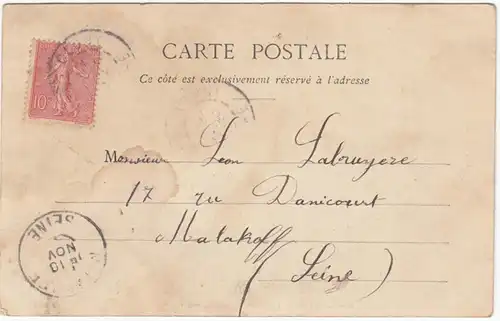 CARTE POSTALE
Ce côté est exclusivement réservé à l'adresse
10
Monsieur Leon Labruyere
17 ru Danicourt
Malakoff
(Seine)
SEINE
10
NOV